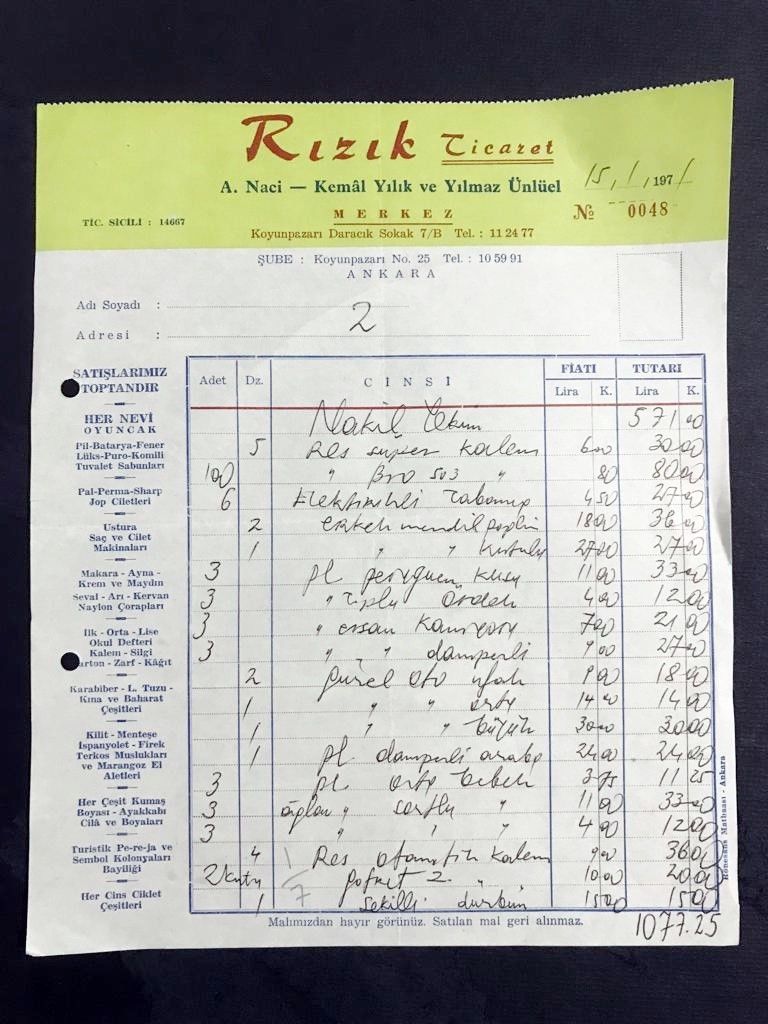 Rızık Ticaret
A. Naci — Kemâl Yılık ve Yılmaz Ünlüel
15/1/1971
TİC. SİCİLİ : 14667
MERKEZ
№ 0048
Koyunpazarı Daracık Sokak 7/B Tel. : 11 24 77
ŞUBE : Koyunpazarı No. 25 Tel. : 10 59 91
ANKARA
Adı Soyadı :
2
Adresi :
SATIŞLARIMIZ
TOPTANDIR
HER NEVİ
OYUNCAK
Pil-Batarya-Fener
Lüks-Puro-Komili
Tuvalet Sabunları
Pal-Perma-Sharp
Jop Ciletleri
Ustura
Saç ve Cilet
Makinaları
Makara - Ayna -
Krem ve Maydın
Seval - Arı - Kervan
Naylon Çorapları
İlk - Orta - Lise
Okul Defteri
Kalem - Silgi
Karton - Zarf - Kâğıt
Karabiber - L. Tuzu -
Kına ve Baharat
Çeşitleri
Kilit - Menteşe
İspanyolet - Firek
Terkos Muslukları
ve Marangoz El
Aletleri
Her Çeşit Kumaş
Boyası - Ayakkabı
Cilâ ve Boyaları
Turistik Pe-re-ja ve
Sembol Kolonyaları
Bayiliği
Her Cins Ciklet
Çeşitleri
Adet Dz. CİNSİ FİATI TUTARI
Lira K. Lira K.
Nakil Yekün 571 00
5 Res süper kalem 600 3000
100 " Bro 503 " 80 8000
6 Elektrikli Tabanca 450 2700
2 erkek mendil poplin 1800 3600
1 " " kutulu 2700 2700
3 pl. kuşu 1100 3300
3 " ördek 400 1200
3 " ersan kamyon 700 2100
3 " " damperli 900 2700
2 gürel oto ufak 900 1800
1 " " orta 1400 1400
1 " " büyük 3000 3000
1 pl. damperli araba 2400 2400
3 pl. orta bebek 375 11 25
3 oğlan " " 1100 3300
3 " " " 400 1200
4 Res otomatik kalem 900 3600
2 kutu gofret 2. " 1000 2000
1 Şekilli dürbün 1500 1500
1/7
Malımızdan hayır görünüz. Satılan mal geri alınmaz.
1077.25
Rönesans Matbaası - Ankara